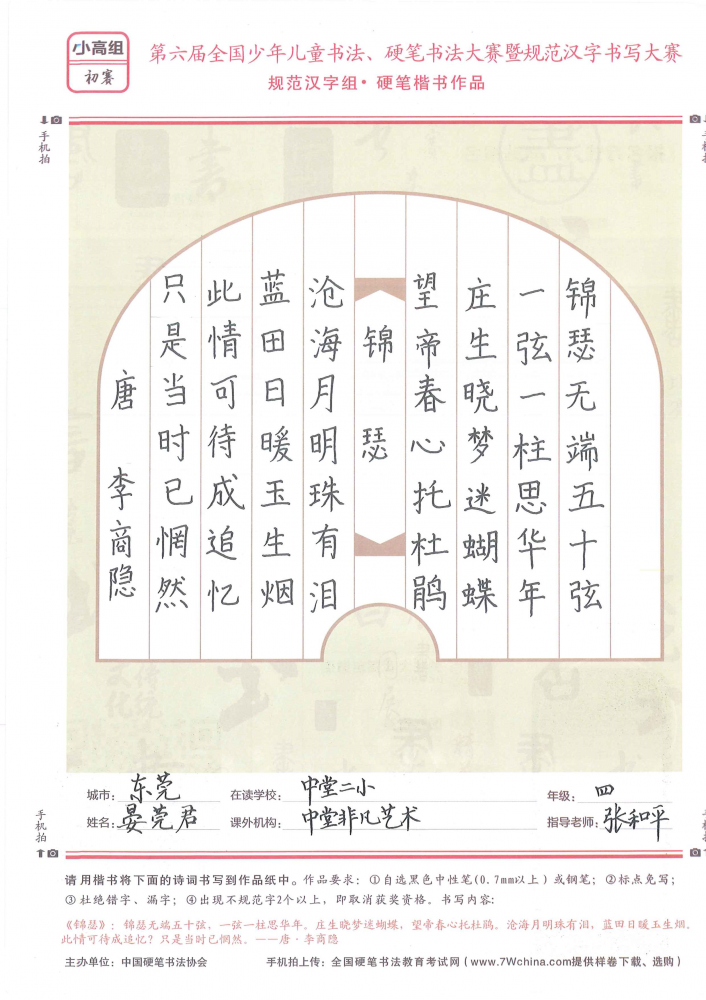 小高组
初赛
第六届全国少年儿童书法、硬笔书法大赛暨规范汉字书写大赛
规范汉字组·硬笔楷书作品
手机拍
手机拍
锦瑟无端五十弦
一弦一柱思华年
庄生晓梦迷蝴蝶
望帝春心托杜鹃
锦瑟
沧海月明珠有泪
蓝田日暖玉生烟
此情可待成追忆
只是当时已惘然
唐 李商隐
城市：东莞 在读学校：中堂二小 年级：四
姓名：晏莞君 课外机构：中堂非凡艺术 指导老师：张和平
手机拍
手机拍
请用楷书将下面的诗词书写到作品纸中。作品要求：①自选黑色中性笔(0.7mm以上)或钢笔；②标点免写；
③杜绝错字、漏字；④出现不规范字2个以上，即取消获奖资格。书写内容：
《锦瑟》：锦瑟无端五十弦，一弦一柱思华年。庄生晓梦迷蝴蝶，望帝春心托杜鹃。沧海月明珠有泪，蓝田日暖玉生烟。
此情可待成追忆？只是当时已惘然。——唐·李商隐
主办单位：中国硬笔书法协会 手机拍上传：全国硬笔书法教育考试网（www.7Wchina.com提供样卷下载、选购）